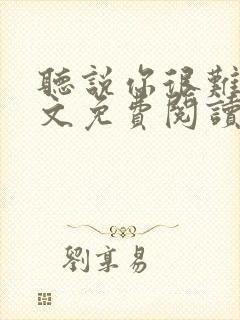 聽說你很難
文免費閱讀
劉享易